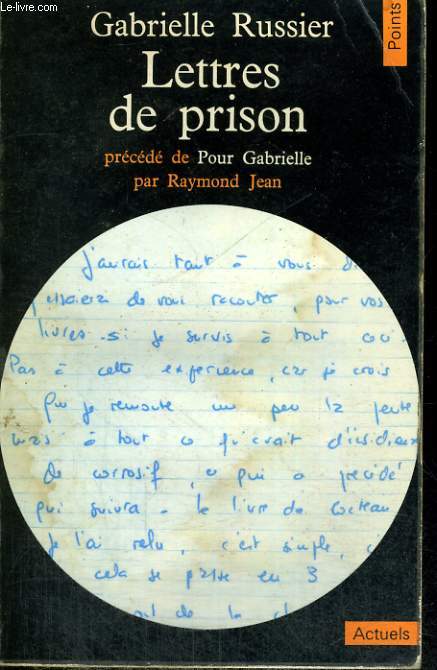 Le-livre.com
Gabrielle Russier
Points
Lettres
de prison
précédé de Pour Gabrielle
par Raymond Jean
j'aurais tant à vous
de vous raconter, pour vos
livres. si je survis à tout
Pas à cette expérience, car je crois
que je remonte un peu la pente
mais à tout ce qu'il y avait d'insidieux
de corrosif, qui a précédé
qui suivra. le livre de Cocteau
je l'ai relu, c'est simple,
cela se passe en 3
de la
Actuels